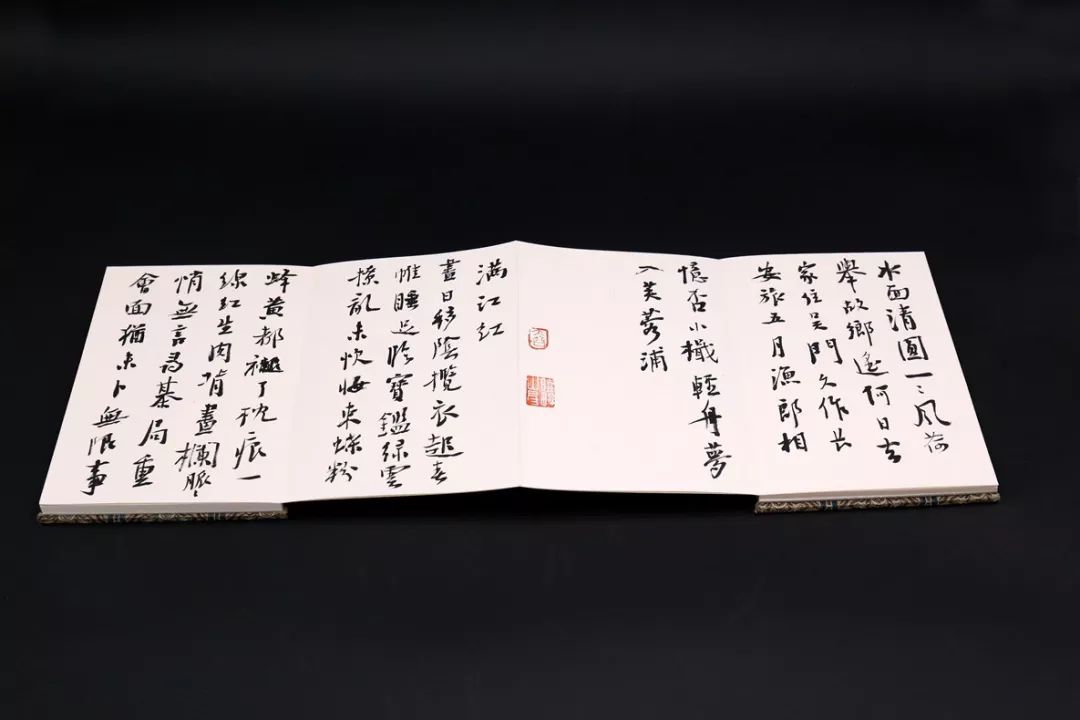 水面清圓一〻風荷
舉故鄉遙何日去
家住吴門久作長
安旅五月漁郎相
憶否小檝輕舟夢
入芙蓉浦
满江红
晝日移陰攬衣起春
帷睡足臨寶鑑緑雲
撩亂未忺妝束蝶粉
蜂黄都褪了枕痕一
線紅生肉背畫欄脈〻
悄無言尋棊局重
會面猶未卜無限事